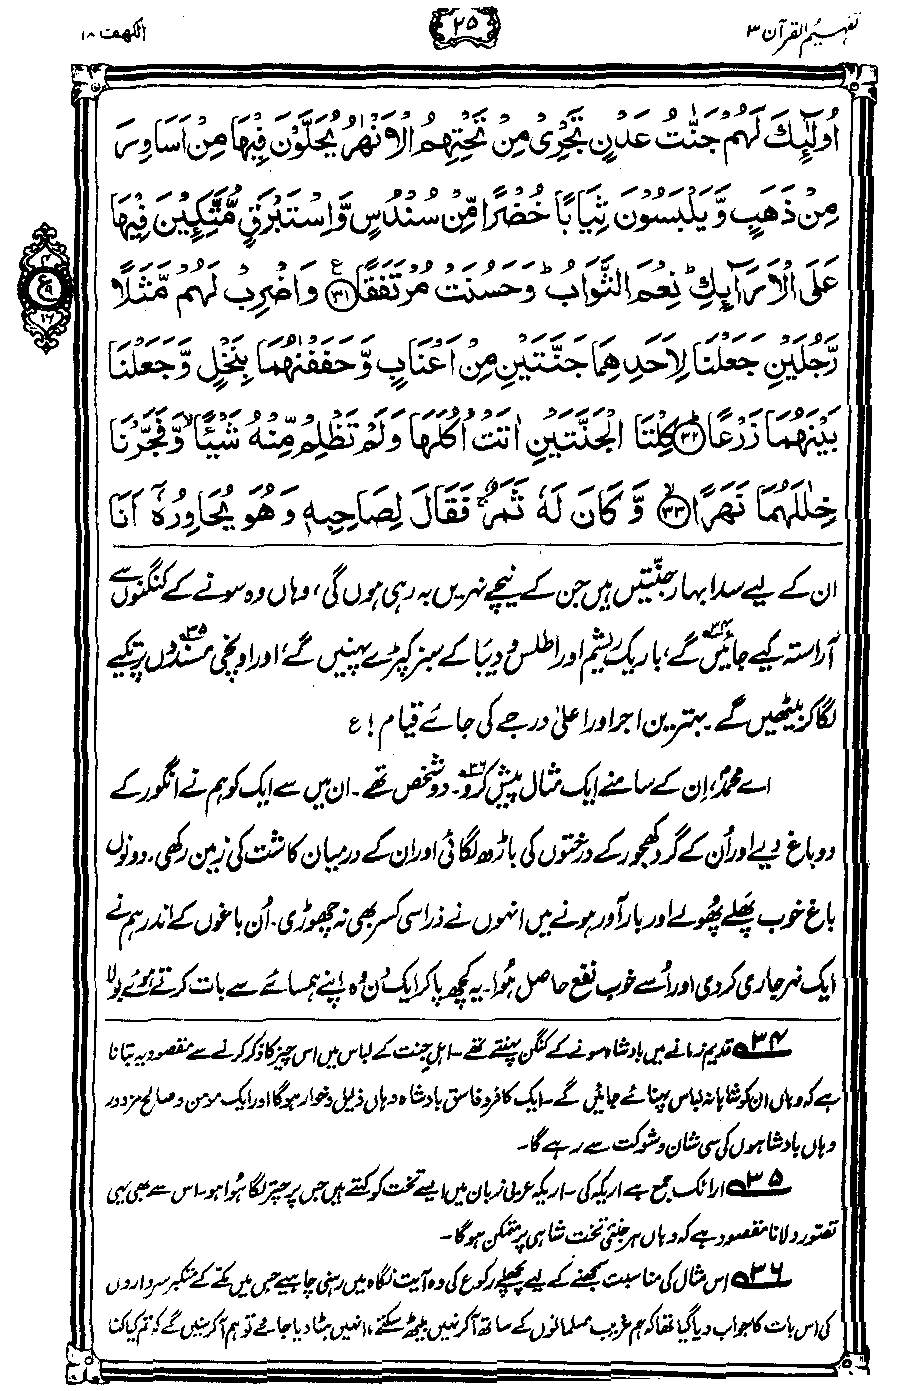 تفہیم القرآن ۳
۲۵
الکہف ۱۸
اُولٰٓئِكَ لَهُمْ جَنّٰتُ عَدْنٍ تَجْرِیْ مِنْ تَحْتِهِمُ الْاَنْهٰرُ یُحَلَّوْنَ فِیْهَا مِنْ اَسَاوِرَ
مِنْ ذَهَبٍ وَّ یَلْبَسُوْنَ ثِیَابًا خُضْرًا مِّنْ سُنْدُسٍ وَّ اِسْتَبْرَقٍ مُّتَّكِـِٕیْنَ فِیْهَا
عَلَی الْاَرَآىِٕكِ ؕ نِعْمَ الثَّوَابُ ؕ وَ حَسُنَتْ مُرْتَفَقًا ۝۳۱ وَ اضْرِبْ لَهُمْ مَّثَلًا
رَّجُلَیْنِ جَعَلْنَا لِاَحَدِهِمَا جَنَّتَیْنِ مِنْ اَعْنَابٍ وَّ حَفَفْنٰهُمَا بِنَخْلٍ وَّ جَعَلْنَا
بَیْنَهُمَا زَرْعًا ۝۳۲ كِلْتَا الْجَنَّتَیْنِ اٰتَتْ اُكُلَهَا وَ لَمْ تَظْلِمْ مِّنْهُ شَیْـًٔا ۙ وَّ فَجَّرْنَا
خِلٰلَهُمَا نَهَرًا ۝۳۳ وَّ كَانَ لَهٗ ثَمَرٌ ۚ فَقَالَ لِصَاحِبِهٖ وَ هُوَ یُحَاوِرُهٗۤ اَنَا
ع
۴
۱۶
ان کے لیے سدا بہار جنتیں ہیں جن کے نیچے نہریں بہ رہی ہوں گی، وہاں وہ سونے کے کنگنوں سے
آراستہ کیے جائیں گے،۳۴ باریک ریشم اور اطلس و دیبا کے سبز کپڑے پہنیں گے، اور اونچی مسندوں۳۵ پر تکیے
لگا کر بیٹھیں گے۔ بہترین اجر اور اعلیٰ درجے کی جائے قیام! ع
اے محمدؐ، اِن کے سامنے ایک مثال پیش کرو۳۶۔ دو شخص تھے۔ ان میں سے ایک کو ہم نے انگور کے
دو باغ دیے اور اُن کے گرد کھجور کے درختوں کی باڑھ لگائی اور ان کے درمیان کاشت کی زمین رکھی۔ دونوں
باغ خوب پھلے پھولے اور بارآور ہونے میں انہوں نے ذرا سی کسر بھی نہ چھوڑی۔ اُن باغوں کے اندر ہم نے
ایک نہر جاری کر دی اور اُسے خوب نفع حاصل ہوا۔ یہ کچھ پا کر ایک دن وہ اپنے ہمسائے سے بات کرتے ہوئے بولا
۳۴ قدیم زمانے میں بادشاہ سونے کے کنگن پہنتے تھے۔ اہلِ جنت کے لباس میں اس چیز کا ذکر کرنے سے مقصود یہ بتانا
ہے کہ وہاں ان کو شاہانہ لباس پہنائے جائیں گے۔ ایک کافر و فاسق بادشاہ وہاں ذلیل و خوار ہو گا اور ایک مومن و صالح مزدور
وہاں بادشاہوں کی سی شان و شوکت سے رہے گا۔
۳۵ ارائک جمع ہے اریکہ کی۔ اریکہ عربی زبان میں ایسے تخت کو کہتے ہیں جس پر چتر لگا ہُوا ہو۔ اس سے بھی یہی
تصور دلانا مقصود ہے کہ وہاں ہر جنتی تخت شاہی پر متمکن ہو گا۔
۳۶ اس مثال کی مناسبت سمجھنے کے لیے پچھلے رکوع کی وہ آیت نگاہ میں رہنی چاہیے جس میں مکے کے متکبر سرداروں
کی اس بات کا جواب دیا گیا تھا کہ ہم غریب مسلمانوں کے ساتھ آ کر نہیں بیٹھ سکتے، انہیں ہٹا دیا جائے تو ہم آ کر سنیں گے کہ تم کیا کہنا